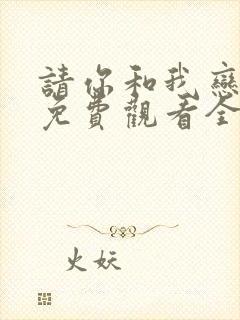 請你和我戀
免費觀看全
火妖